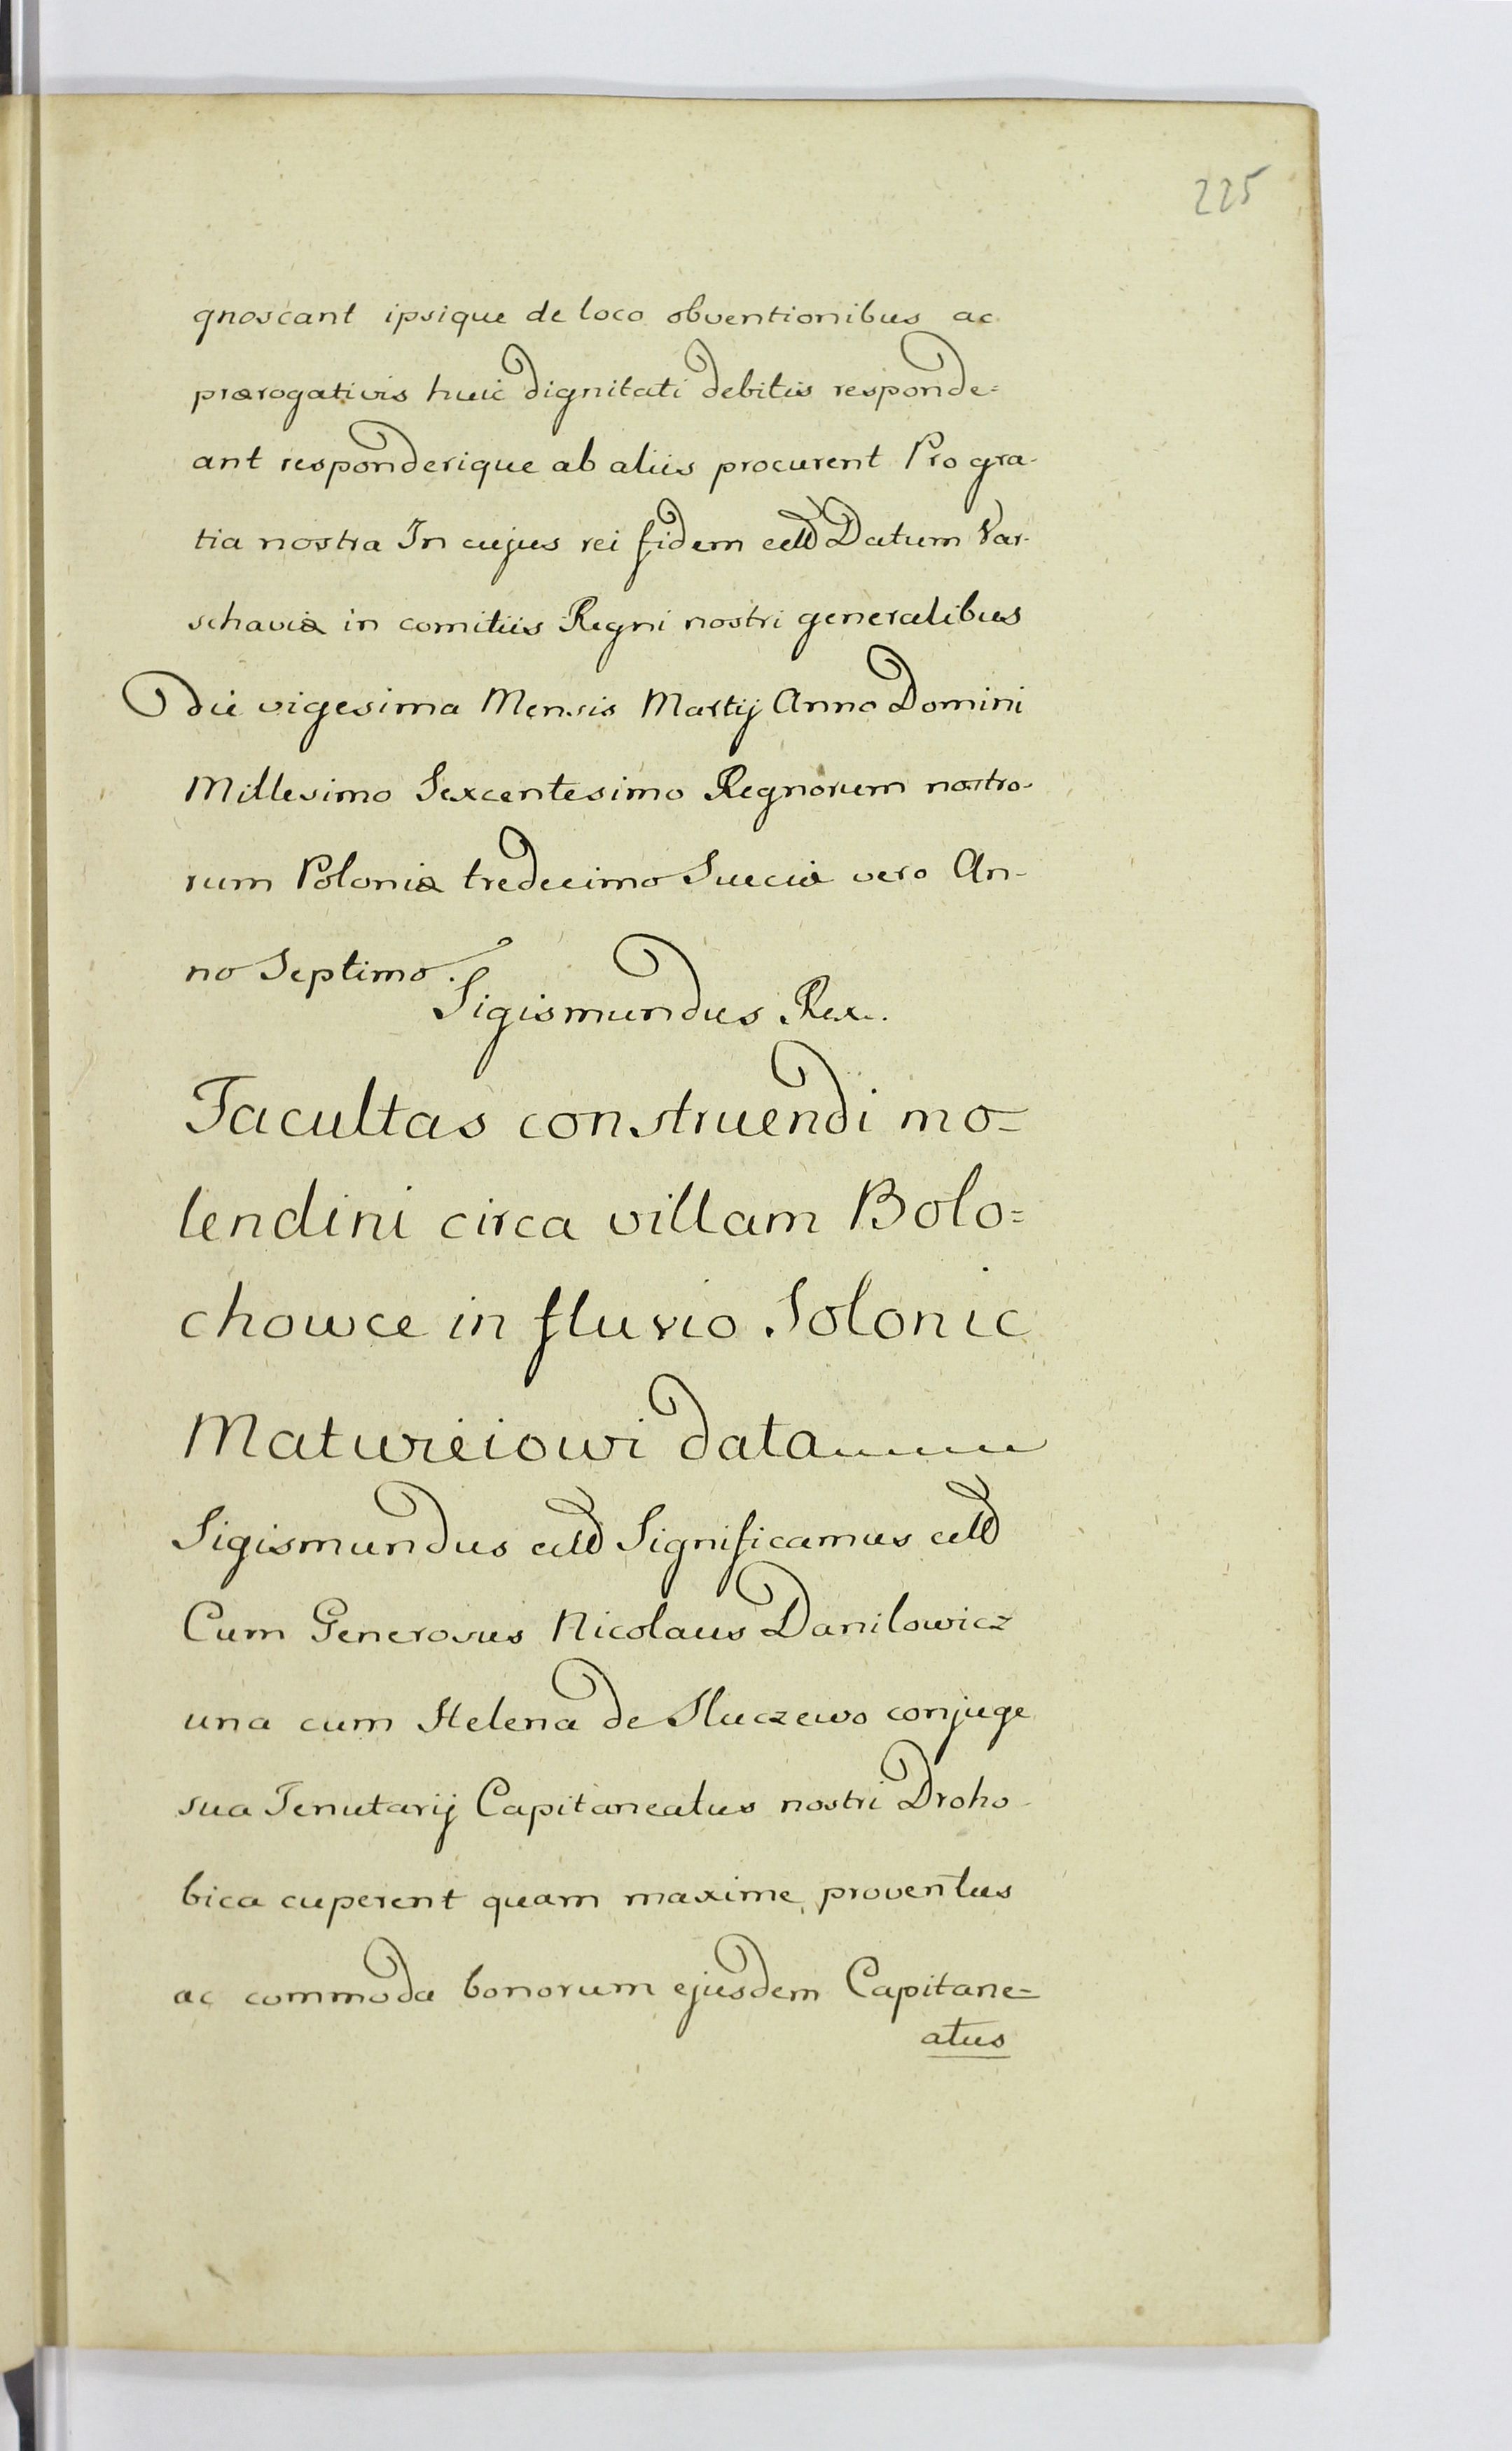 225
gnoscant ipsique de loco obventionibus ac
prærogativis huic dignitati debitis responde=
ant responderique ab aliis procurent Pro gra-
tia nostra In cujus rei fidem etttb Datum Var-
schaviæ in comitiis Regni nostri generalibus
Die vigesima Mensis Martij Anno Domini
Millesimo Sexcentesimo Regnorum nostro-
rum Poloniæ tredecimo Sueciæ vero An-
no Septimo.
Sigismundus Rex.
Facultas construendi mo=
lendini circa villam Bolo=
chowce in fluvio Solonic
Matwieiowi data
Sigismundus etttb Significamus etttb
Cum Generosus Nicolaus Danilowicz
una cum Helena de Uluczewo conjuge
sua Tenutarij Capitaneatus nostri Droho-
bica cuperent quam maxime proventus
ac commoda bonorum ejusdem Capitane=
atus